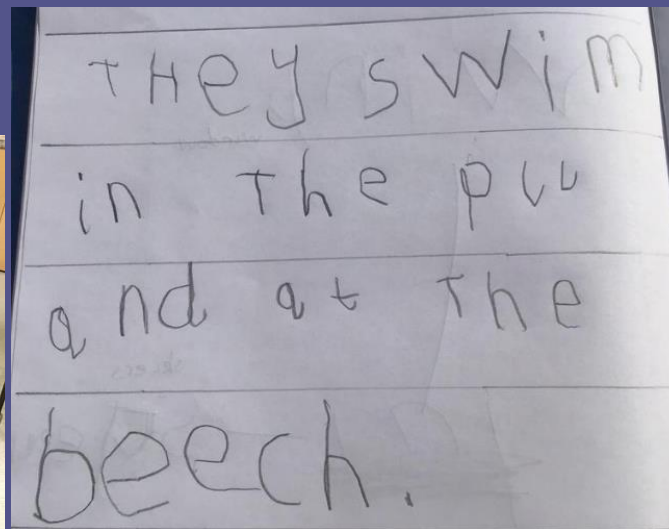 THey swim
in The puu
and at The
beech.